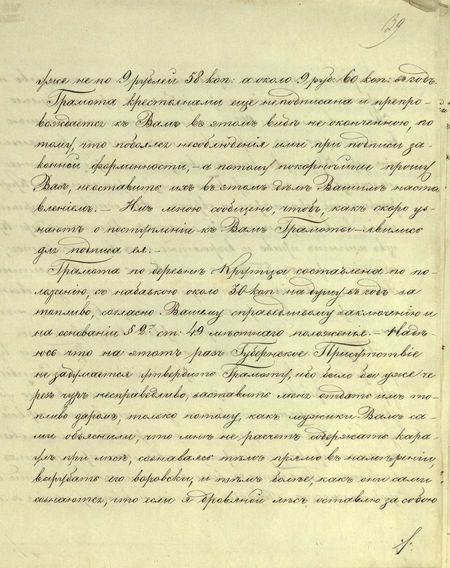 139
уже не по 9 рублей 58 коп: а около 9 руб: 60 коп: въ годъ.
Грамота крестьянами еще неподписана и препро-
вождается къ Вамъ въ этомъ видѣ не оконченною, по
тому, что боялся несоблюденія ими при подписи за-
конной форменности, — а потому покорнѣйше прошу
Васъ, неоставить ихъ въ этомъ дѣлѣ Вашимъ наста
вленіемъ. — Имъ мною сообщено, чтобъ, какъ скоро уз-
наютъ о поступленіи къ Вамъ Грамоты — явились
для подписа ея. —
Грамота по деревнѣ Крутца составлена по по-
ложенію, съ набавкою около 30 коп: на душу въ годъ за
топливо, согласно Вашему справедливому заключенію и
на основаніи § 2го ст: 49 мѣстнаго положенья. — Надѣ-
юсь что на этотъ разъ Губернское Присутствіе
не задумается утвердить Грамоту, ибо было бы уже че
резъ чуръ несправедливо, заставить меня отдать имъ то-
пливо даромъ, только потому, какъ мужики Вамъ са-
ми объяснили, что мнѣ не расчетъ содержать кара-
улъ при лѣсѣ, сознаваясь тѣмъ прямо въ намѣреніи,
вырубать его воровски, и тѣмъ болѣе, какъ они сами
сознаются, что если я дровяной лѣсъ оставлю за собою